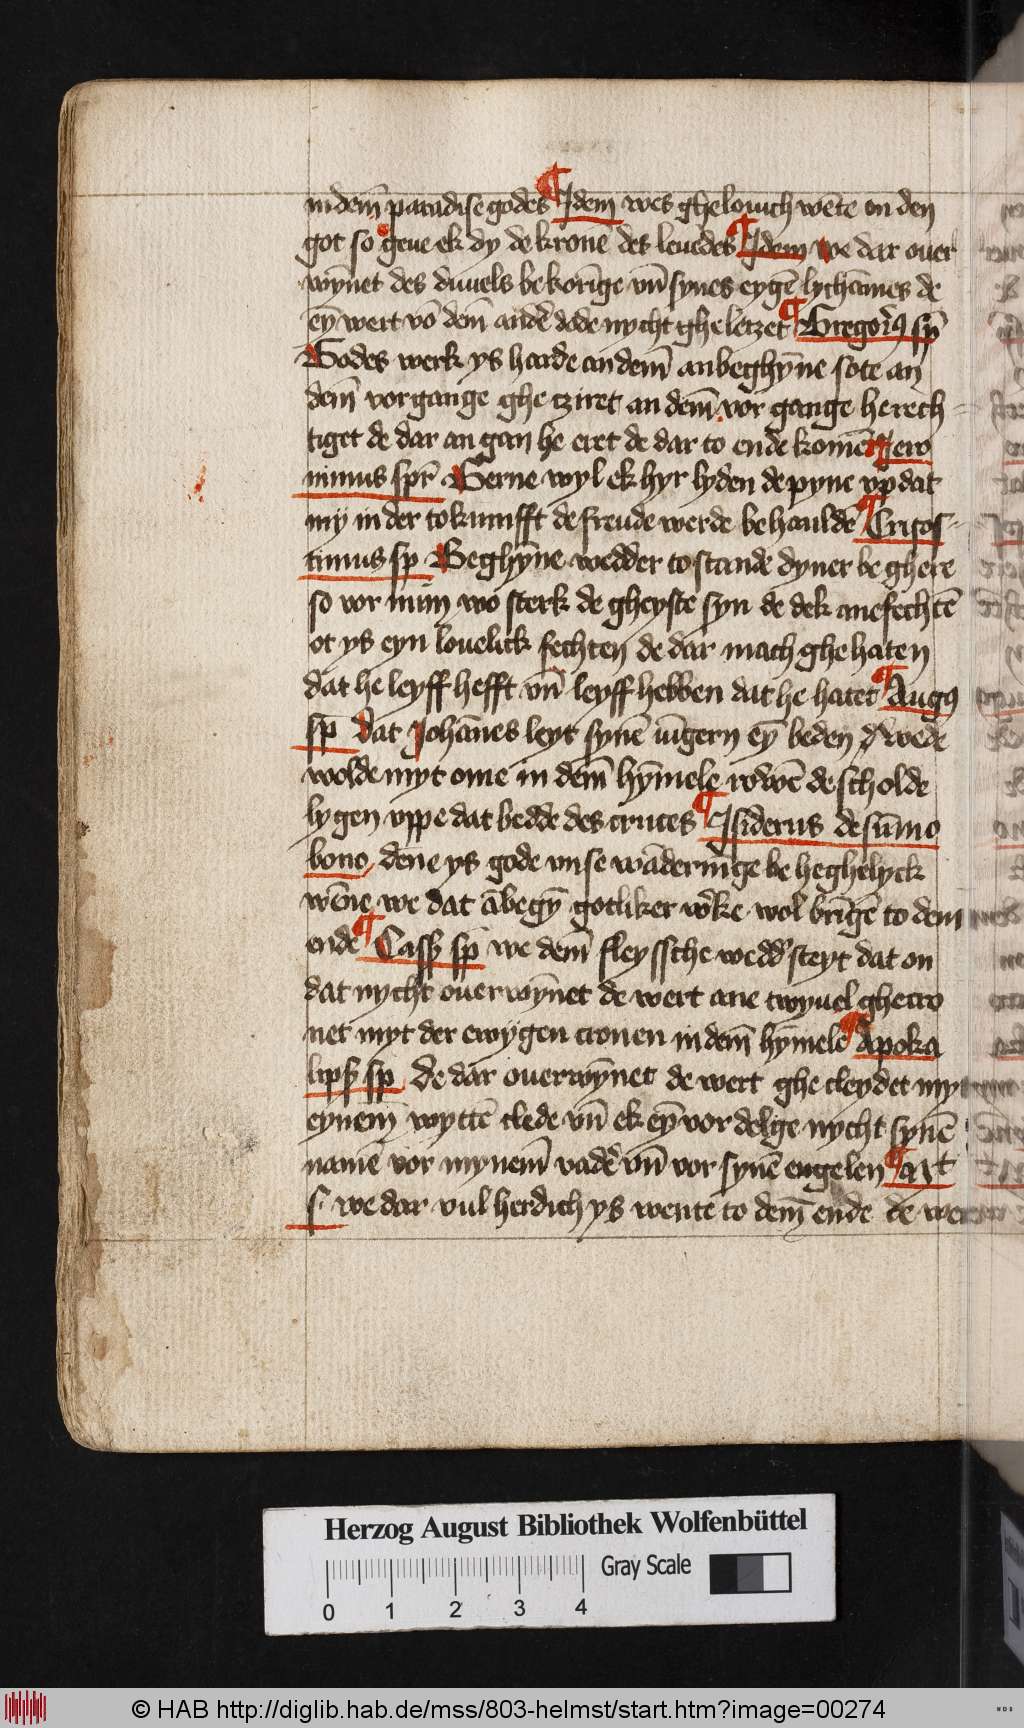 in dem̄ paradise godes ¶ Idem wes ghelouich wēte en den
got so geue ek dy de kronē des leuēdes ¶ Idem we dar ouer
wȳnet des duuels bekorīge vn̄ synes eygē lychāmes de
eȳ wert vō dem̄ andē dode nycht gheletzet ¶ Gregori9 sp̄
Godes werk ys harde an dem̄ anbeghȳne sote an
dem̄ vorgange ghe tziret an dem̄ vor gange he rech
tiget de dar an gan he eret de dar to ende komē ¶ Jero
nimus spr̄ Gerne wyl ek hyr lyden de pyne vp dat
my in der tokumfft de freude werde behauldē ¶ Crisos
timus sp̄ Beghȳne wedder to stande dyner be ghere
so vor nim̄ wo sterk de gheyste syn de dek anefechtē
ot ys eyn louelick fechten de dar mach ghe haten
dat he leyff hefft vn̄ leyff hebben dat he hatet ¶ Aug9
sp̄ Dat Johānes leyt synē iūgern eȳ beden we de
wolde myt ome in dem̄ hȳmele rowē de scholde
lygen vppe dat bedde des cruces ¶ Isiderus de sūmo
bono dēne ys gode vnse wāderīnge be heghelyck
wēne we dat ābegȳ gotliker w'ke wol brīgē to dem
ende ¶ Cass9 sp̄ we dem̄ fleyssche wedd' steyt dat on
dat nycht ouerwȳnet de wert ane twyuel ghecro
net myt der ewygen cronen in dem̄ hȳmele ¶ Apoka
lips9 sp̄ De dar ouerwȳnet de wert ghe cleydet myt
eynem̄ wyttē clede vn̄ ek eȳ vor delge nycht synē
namē vor mynem̄ vadē vn̄ vor synē engelen ¶
s we dar vul herdich ys wente to dem̄ ende de wert
Herzog August Bibliothek Wolfenbüttel
Gray Scale
0 1 2 3 4
© HAB http://diglib.hab.de/mss/803-helmst/start.htm?image=00274